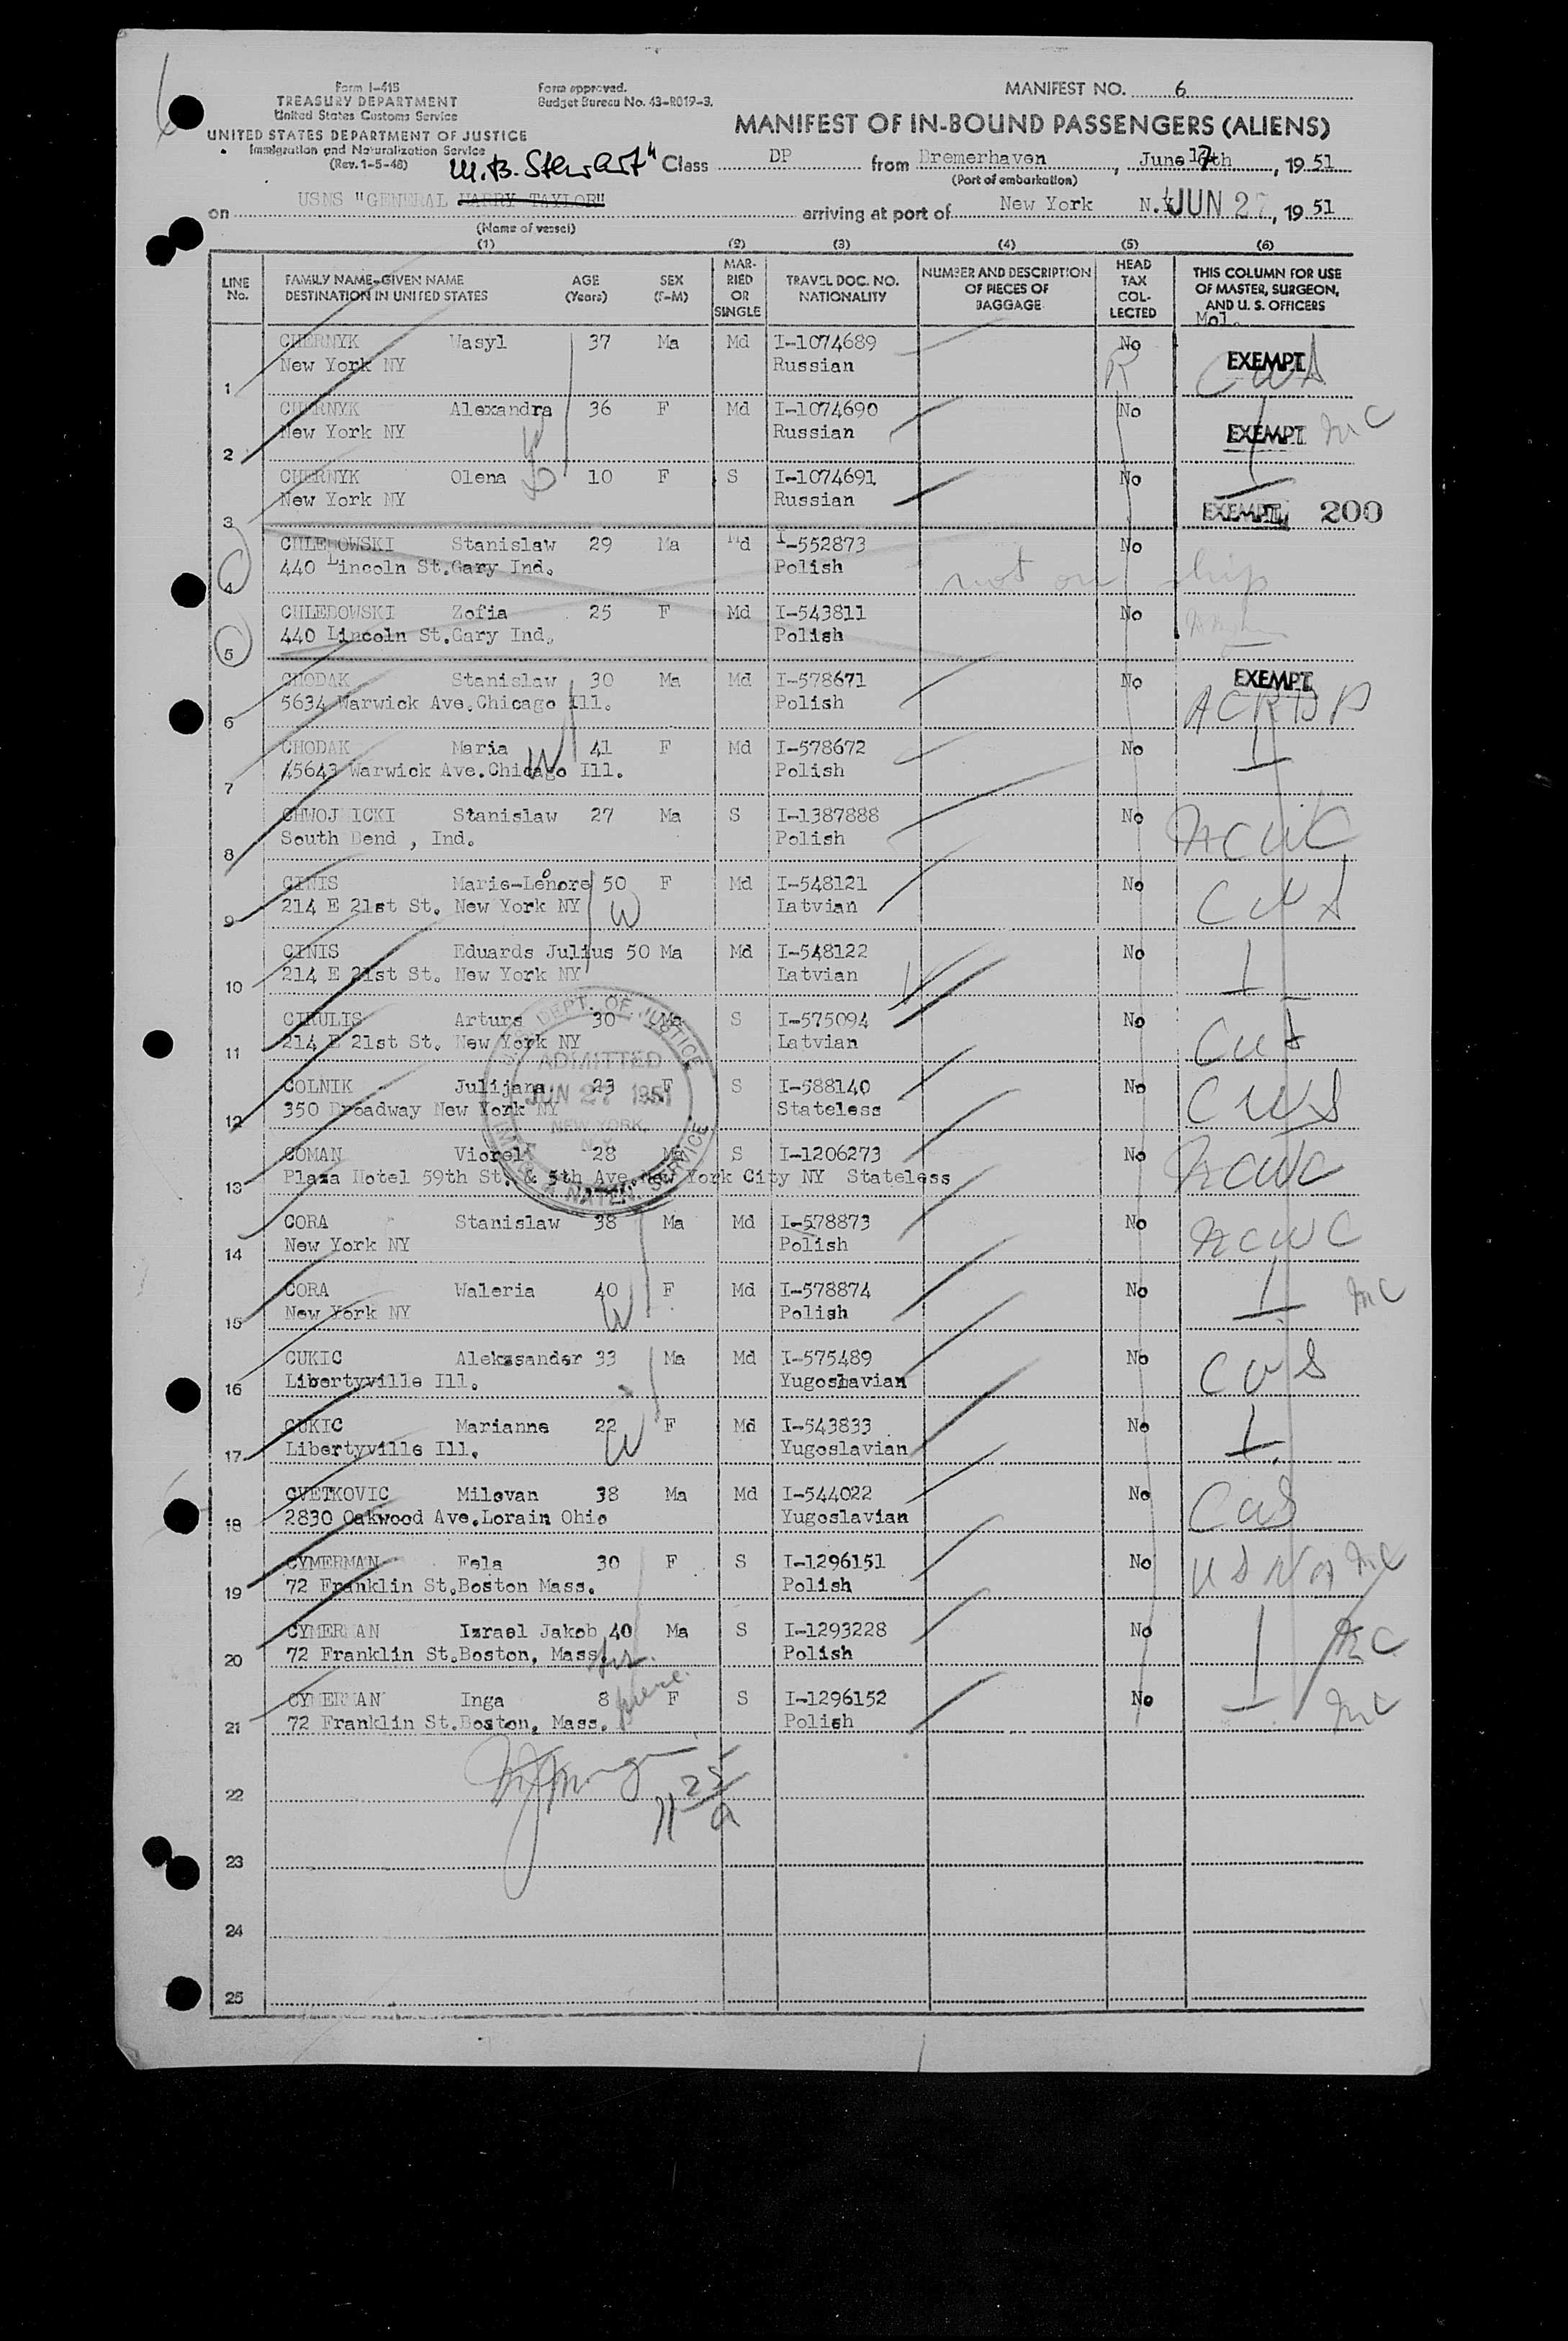 6
Form I-415
TREASURY DEPARTMENT
United States Customs Service
UNITED STATES DEPARTMENT OF JUSTICE
Immigration and Naturalization Service
(Rev. 1-5-48)
Form approved.
Budget Bureau No. 43-R019-3.
MANIFEST NO. 6
MANIFEST OF IN-BOUND PASSENGERS (ALIENS)
M.B. Stewart" Class DP from Bremerhaven, June 17th, 1951
(Port of embarkation)
on USNS "GENERAL HARRY TAYLOR" arriving at port of New York N.Y. JUN 27, 1951
(Name of vessel)
(1) (2) (3) (4) (5) (6)
LINE No. FAMILY NAME-GIVEN NAME DESTINATION IN UNITED STATES AGE (Years) SEX (F-M) MARRIED OR SINGLE TRAVEL DOC. NO. NATIONALITY NUMBER AND DESCRIPTION OF PIECES OF BAGGAGE HEAD TAX COLLECTED THIS COLUMN FOR USE OF MASTER, SURGEON, AND U. S. OFFICERS
Mol.
CHERNYK Wasyl 37 Ma Md I-1074689 No EXEMPT
1 New York NY Russian R CWS
CHERNYK Alexandra 36 F Md I-1074690 No
2 New York NY Russian EXEMPT
CHERNYK Olena 10 F S I-1074691 No
3 New York NY Russian EXEMPT 200
CHLEDOWSKI Stanislaw 29 Ma Md I-552873 No
4 440 Lincoln St.Gary Ind. Polish not on ship
CHLEDOWSKI Zofia 25 F Md I-543811 No
5 440 Lincoln St.Gary Ind. Polish
CHODAK Stanislaw 30 Ma Md I-578671 No EXEMPT
6 5634 Warwick Ave.Chicago Ill. Polish
CHODAK Maria 41 F Md I-578672 No
7 5643 Warwick Ave.Chicago Ill. Polish
CHWOJNICKI Stanislaw 27 Ma S I-1387888 No
8 South Bend , Ind. Polish NCWC
CINIS Marie-Lenore 50 F Md I-548121 No
9 214 E 21st St. New York NY Latvian CWS
CINIS Eduards Julius 50 Ma Md I-548122 No
10 214 E 21st St. New York NY Latvian
CIRULIS Arturs 30 Ma S I-575094 No
11 214 E 21st St. New York NY Latvian CWS
COLNIK Julijana 23 F S I-588140 No
12 350 Broadway New York NY Stateless CWS
COMAN Viorel 28 Ma S I-1206273 No
13 Plaza Hotel 59th St. & 5th Ave.New York City NY Stateless NCWC
CORA Stanislaw 38 Ma Md I-578873 No
14 New York NY Polish NCWC
CORA Waleria 40 F Md I-578874 No
15 New York NY Polish
CUKIC Alekssander 33 Ma Md I-575489 No
16 Libertyville Ill. Yugoslavian CWS
CUKIC Marianne 22 F Md I-543833 No
17 Libertyville Ill. Yugoslavian
CVETKOVIC Milovan 38 Ma Md I-544022 No
18 2830 Oakwood Ave.Lorain Ohio Yugoslavian CWS
CYMERMAN Fela 30 F S I-1296151 No
19 72 Franklin St.Boston Mass. Polish
CYMERMAN Izrael Jakob 40 Ma S I-1293228 No
20 72 Franklin St.Boston, Mass. Polish
CYMERMAN Inga 8 F S I-1296152 No
21 72 Franklin St.Boston, Mass. Polish
22
23
24
25
U.S. DEPT. OF JUSTICE
ADMITTED
JUN 27 1951
NEW YORK,
N.Y.